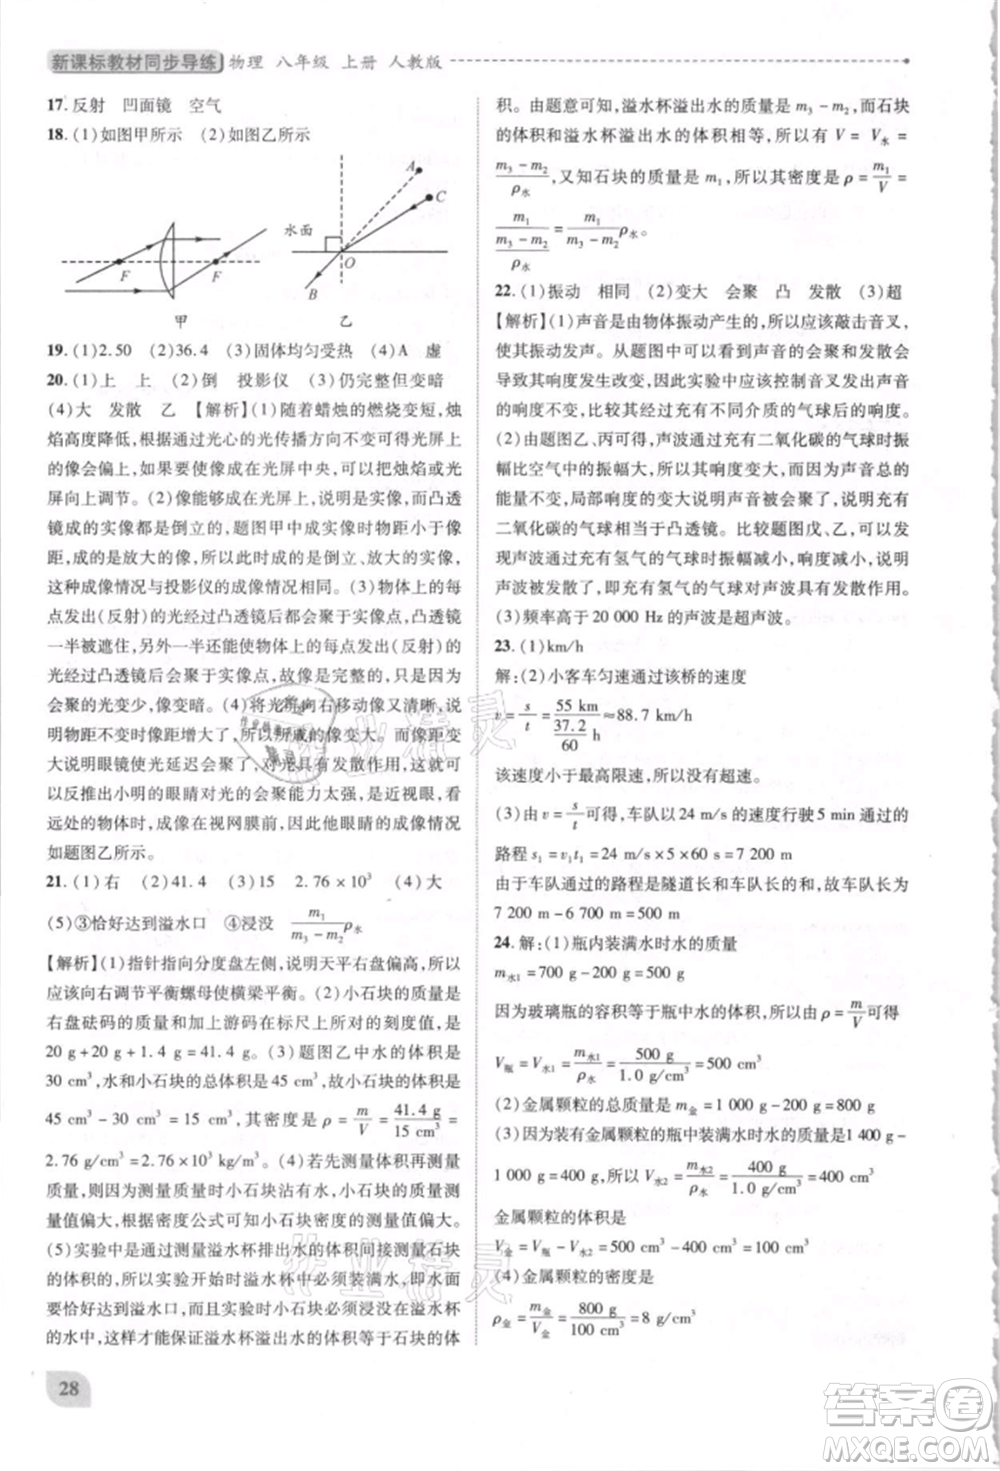 新课标教材同步导练 物理 八年级 上册 人教版
17. 反射 凹面镜 空气
18. (1)如图甲所示 (2)如图乙所示
F F 甲
水面 A C O B 乙
19. (1)2.50 (2)36.4 (3)固体均匀受热 (4)A 虚
20. (1)上 上 (2)倒 投影仪 (3)仍完整但变暗
(4)大 发散 乙 【解析】(1)随着蜡烛的燃烧变短,烛
焰高度降低,根据通过光心的光传播方向不变,烛焰
的像会上移,要使像成在光屏中央,可以把烛焰或光
屏向上调节。(2)像能够成在光屏上,说明是实像,凸透
镜成的实像都是倒立的,题图甲中成实像时物距小于像
距,成的是放大的像,所以此时成的是倒立、放大的实像,
这种成像情况与投影仪的成像情况相同。(3)物体上的每
点发出(反射)的光经过凸透镜后都会聚成一点,凸透镜
一半被遮住,另外一半还能使物体上的每点发出(反射)的
光经过凸透镜后会聚于光屏,故像是完整的,但光线减少,
像变暗。(4)将光屏向右移动像又清晰,说
明物距不变时,所成的像变大,像距变大,
说明眼镜使光延迟会聚了,对光具有发散作用,可
以反推出小明的眼睛对光的会聚能力太强,是近视眼,看
远处的物体时,成像在视网膜前,因此他眼睛的成像情况
如题图乙所示。
21. (1)右 (2)41.4 (3)15 2.76×10³ (4)大
(5)③恰好达到溢水口 ④浸没 m₁/(m₃−m₂) ρ水
【解析】(1)指针指向分度盘左侧,说明天平右端偏高,所以
应该向右调节平衡螺母使横梁平衡。(2)小石块的质量等于
右盘砝码的质量和加上游码在标尺上示的刻度值,为
20 g+20 g+1.4 g=41.4 g。(3)题图乙中水的体积是
30 cm³,水和小石块的总体积是45 cm³,故小石块的体积是
45 cm³−30 cm³=15 cm³,其密度是ρ=m/V=41.4 g/15 cm³=
2.76 g/cm³=2.76×10³ kg/m³。(4)若先测量体积再测量质
量,则测量质量时小石块沾有水,小石块的质量测
量值偏大,根据密度公式可知小石块密度的测量值偏大。
(5)实验中是通过测量溢水杯排出水的体积间接测量石块
的体积,所以实验开始时溢水杯中必须装满水,即水面
恰好达到溢水口,而且实验中小石块必须浸没在溢水杯
的水中,这样才能保证溢水杯溢出水的体积等于石块的体
28
积。由题意可知,溢水杯溢出水的质量是m₃−m₂,而石块
的体积和溢水杯溢出水的体积相等,所以有V=V水=
(m₃−m₂)/ρ水,又知石块的质量是m₁,所以其密度是ρ=m₁/V=
m₁/((m₃−m₂)/ρ水)=m₁/(m₃−m₂) ρ水。
22. (1)振动 相同 (2)变大 会聚 凸 发散 (3)超
【解析】(1)声音是由物体振动产生的,所以应该敲击音叉,
使其振动发声。从题图可以看出声音的响度改变会
导致其振幅发生改变,因此实验中应该控制音叉发出声音
的响度不变,并比较经过充有不同介质的气球后的响度。
(2)由题图乙、丙可得,声波通过充有二氧化碳的气球时振
幅比空气中的振幅大,其响度变大;而音叉发出声音的总
能量不变,局部响度的变大说明声音被会聚了,说明充有
二氧化碳的气球相当于凸透镜。比较题图戊、乙,可以发
现声波通过充有氢气的气球时振幅减小,响度减小,说明
声波被发散了,因此充有氢气的气球对声波有发散作用。
(3)频率高于20 000 Hz的声波是超声波。
23. (1)km/h
解:(2)小客车匀速通过该桥的速度
v=s/t=55 km/(37.2/60 h)≈88.7 km/h
该速度小于最高限速,所以没有超速。
(3)由v=s/t可得,车队以24 m/s的速度行驶5 min通过的
路程s₁=v₁t₁=24 m/s×5×60 s=7 200 m
由于车队通过的路程是隧道长和车队长,所以车队长是
7 200 m−6 700 m=500 m
24. 解:(1)瓶内装满水时水的质量
m水1=700 g−200 g=500 g
因为玻璃瓶的容积等于瓶中水的体积,所以由ρ=m/V可得
V瓶=V水1=m水1/ρ水=500 g/1.0 g/cm³=500 cm³
(2)金属颗粒的总质量是m金=1 000 g−200 g=800 g
(3)因为装有金属颗粒的瓶中装满水时水的质量为1 400 g−
1 000 g=400 g,所以V水2=m水2/ρ水=400 g/1.0 g/cm³=400 cm³
金属颗粒的体积是
V金=V瓶−V水2=500 cm³−400 cm³=100 cm³
(4)金属颗粒的密度是
ρ金=m金/V金=800 g/100 cm³=8 g/cm³
作业精灵
作业精灵
答案圈
MXQE.COM